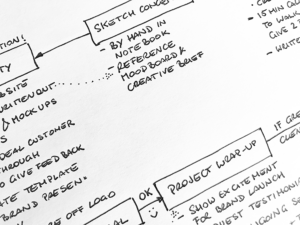 SKETCH CONCE
- BY HAND IN
NOTEBOOK
- REFERENCE
MOODBOARD &
CREATIVE BRIEF
ION!
TY
BSITE
& MOCKUPS
DEAL CUSTOMER
THROUGH
TO GIVE FEEDBACK
ATE TEMPLATE
BRAND PRESEN
OFF LOGO
OK
PROJECT WRAP-UP
- SHOW EXCITEMENT
FOR BRAND LAUNCH
IF GRE
CLIEN
- 15 MIN
TO WALK
GIVE 2
- WRITE